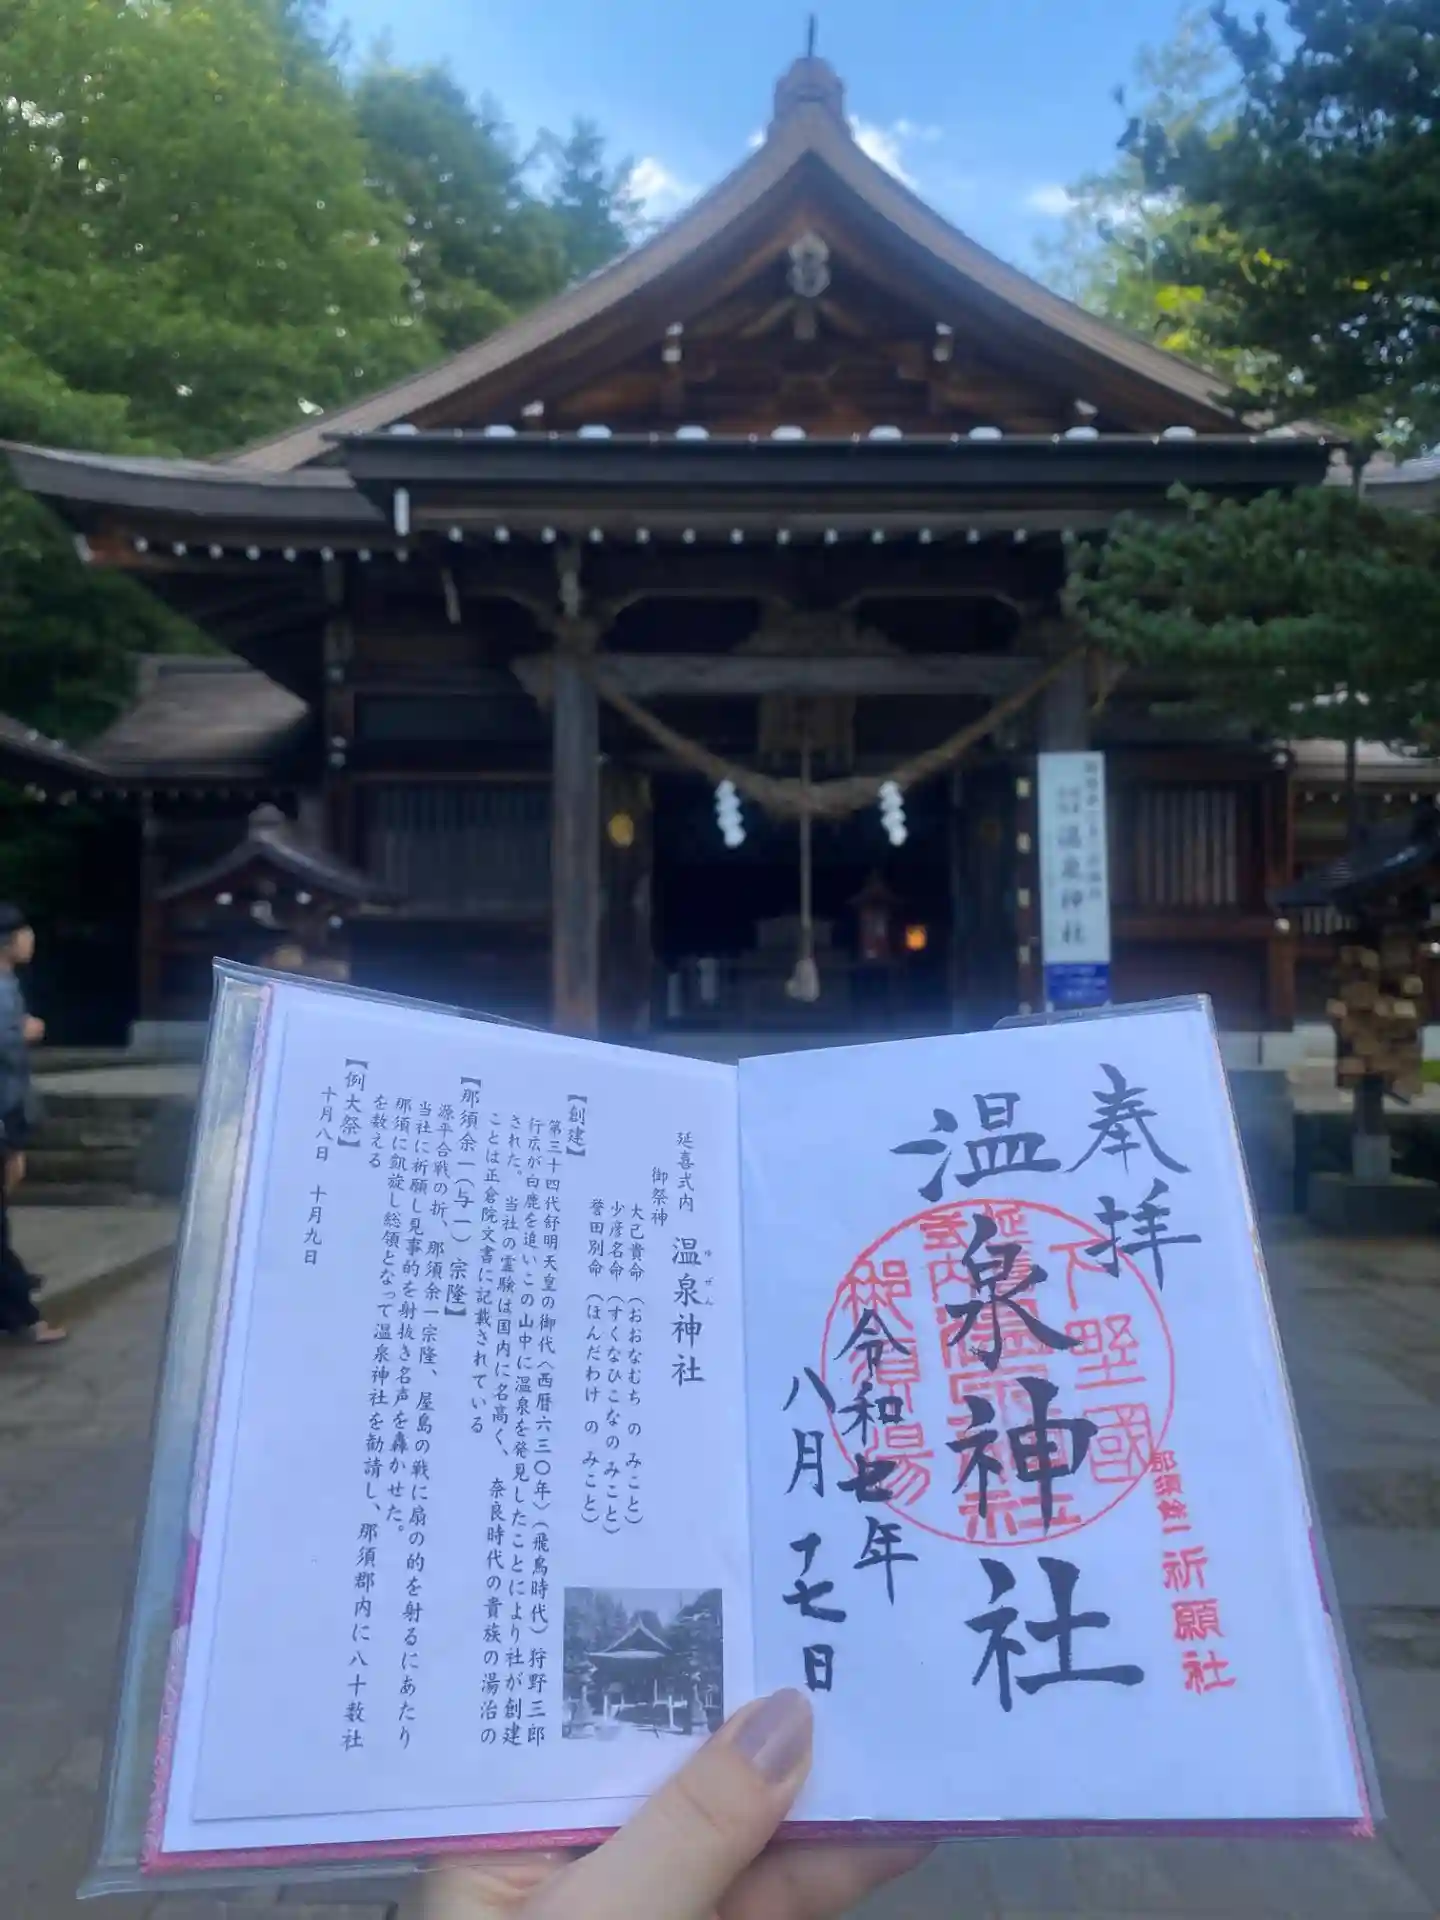 奉拝
温泉神社
令和七年
八月十七日
下野國
延喜式内
温泉神社
那須湯
那須餘一
祈願社
延喜式内 温泉神社
ゆぜん
御祭神
大己貴命(おおなむち の みこと)
少彦名命(すくなひこなのみこと)
誉田別命(ほんだわけ の みこと)
【創建】
第三十四代舒明天皇の御代〈西暦六三〇年〉(飛鳥時代)狩野三郎
行広が白鹿を追いこの山中に温泉を発見したことにより社が創建
された。当社の霊験は国内に名高く、奈良時代の貴族の湯治の
ことは正倉院文書に記載されている
【那須余一(与一)宗隆】
源平合戦の折、那須余一宗隆、屋島の戦に扇の的を射るにあたり
当社に祈願し見事的を射抜き名声を轟かせた。
那須に凱旋し総領となって温泉神社を勧請し、那須郡内に八十数社
を数える
【例大祭】
十月八日 十月九日
温泉神社